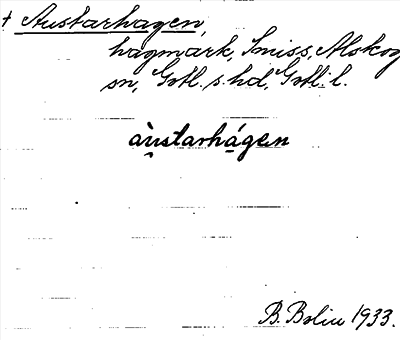 + Austarhagen,
hagmark, Smiss, Alskog
sn, Gotl. s. hd, Gotl. l.
àu̞starhá̞gen
B. Bolin 1933.